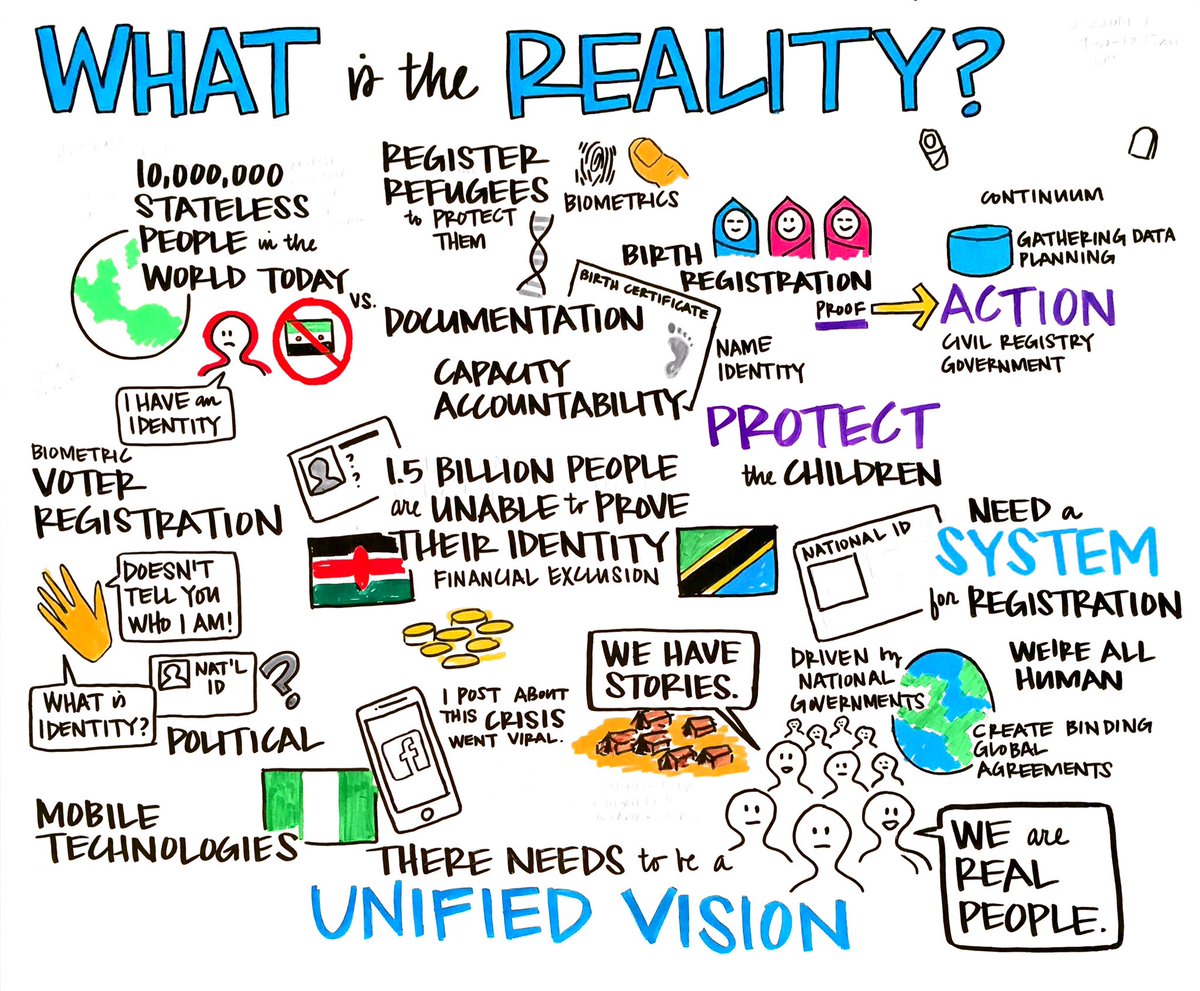 WHAT is the REALITY?
10,000,000
STATELESS
PEOPLE in the
WORLD TODAY
vs.
I HAVE an
IDENTITY
REGISTER
REFUGEES
to PROTECT
THEM
BIOMETRICS
BIRTH
REGISTRATION
PROOF
CONTINUUM
GATHERING DATA
PLANNING
ACTION
CIVIL REGISTRY
GOVERNMENT
DOCUMENTATION
BIRTH CERTIFICATE
NAME
IDENTITY
CAPACITY
ACCOUNTABILITY
PROTECT
the CHILDREN
BIOMETRIC
VOTER
REGISTRATION
? ? ?
1.5 BILLION PEOPLE
are UNABLE to PROVE
THEIR IDENTITY
FINANCIAL EXCLUSION
NATIONAL ID
NEED a
SYSTEM
for REGISTRATION
DOESN'T
TELL YOU
WHO I AM!
WHAT is
IDENTITY?
NAT'L
ID
?
POLITICAL
f
I POST ABOUT
THIS CRISIS
WENT VIRAL.
WE HAVE
STORIES.
DRIVEN by
NATIONAL
GOVERNMENTS
WE'RE ALL
HUMAN
CREATE BINDING
GLOBAL
AGREEMENTS
MOBILE
TECHNOLOGIES
THERE NEEDS to be a
UNIFIED VISION
WE are
REAL
PEOPLE.